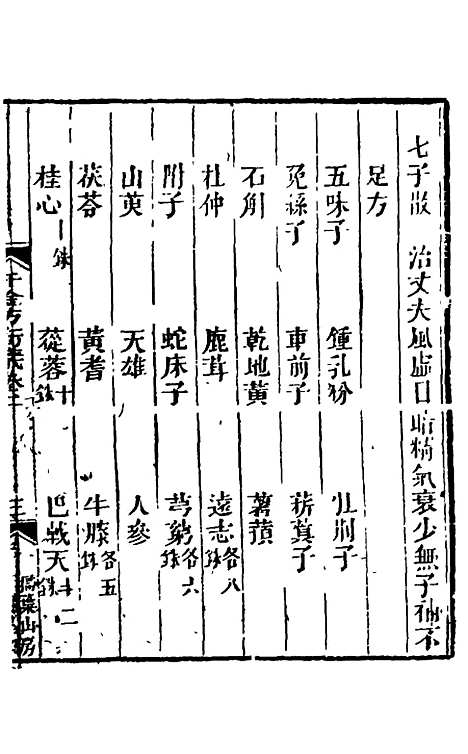 七子散　治丈夫風虛目暗精氣衰少無子補不
足方
五味子　鍾乳粉　牡荆子
兔絲子　車前子　菥蓂子
石斛　乾地黃　薯蕷
杜仲　鹿茸　遠志各八銖
附子　蛇床子　芎藭各六銖
山茱　天雄　人參
茯苓　黃耆　牛膝各五銖
桂心十銖　蓯蓉十銖　巴戟天十二銖
千金方衍義卷二　掃葉山房